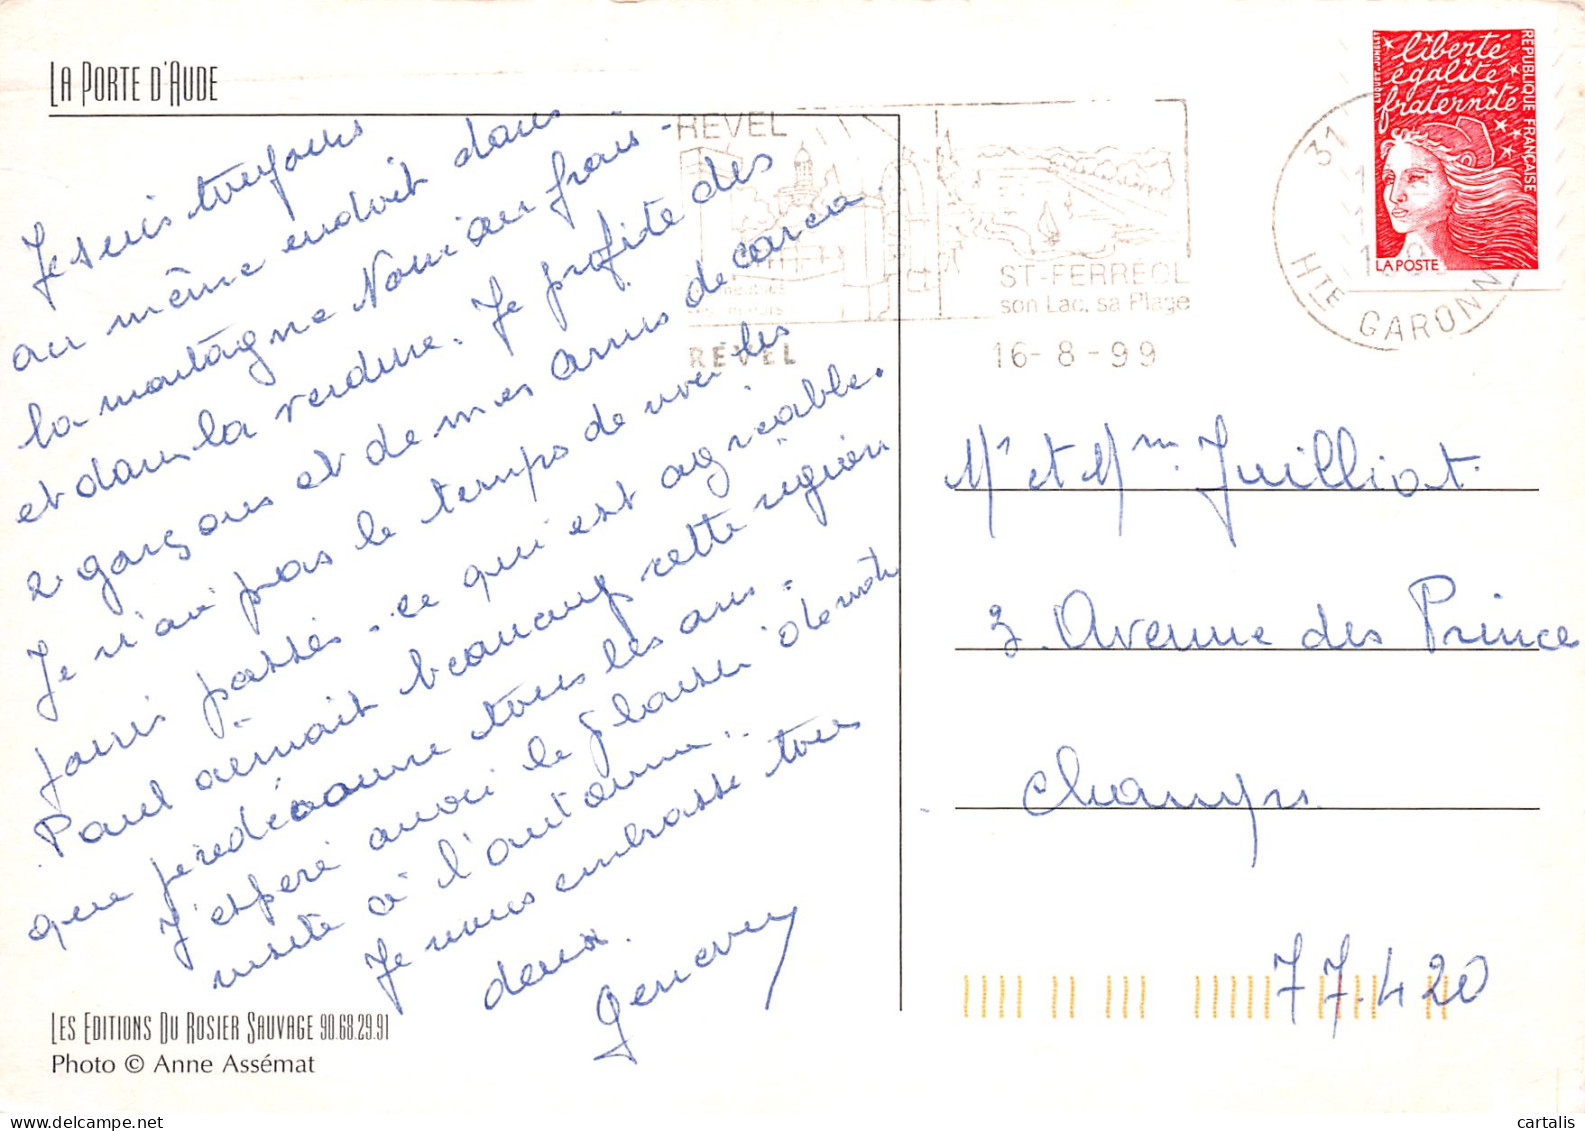 LA PORTE D'AUDE
Je suis toujours
au même endroit dans
la montagne Noire au frais -
et dans la verdure. Je profite des
2 garçons et de mes amis de carca
Je n'ai pas le temps de voir les
jours passés. ce qui est agréable.
Paul aimait beaucoup cette région
que je redécouvre tous les ans.
J'espère avoir le plaisir de votre
visite à l'automne.
Je vous embrasse tous
deux.
REVEL
ST-FERRÉOL
son Lac, sa Plage
REVEL
16-8-99
31
HTE GARONNE
liberté
égalité
fraternité
RÉPUBLIQUE FRANÇAISE
LA POSTE
Mr et Mme Juilliot.
3. Avenue des Prince
Champs
77.420
LES EDITIONS DU ROSIER SAUVAGE 90.68.29.91
Photo © Anne Assémat
cartalis